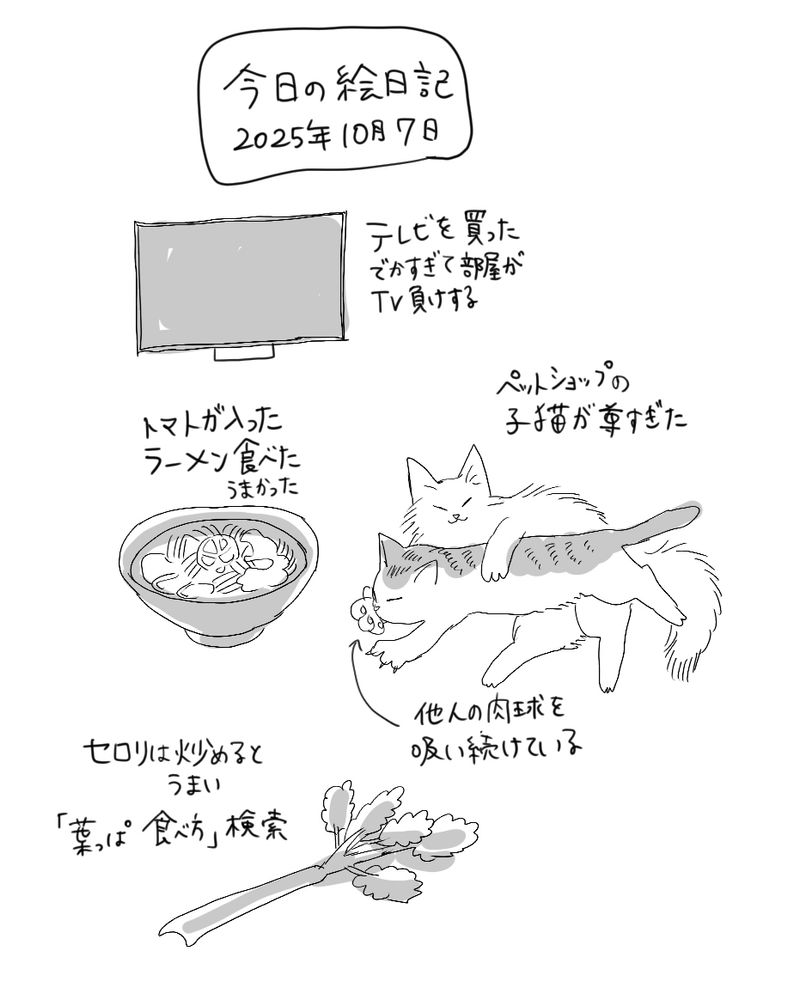 今日の絵日記
2025年10月7日
テレビを買った
でかすぎて部屋が
TV負けする
トマトが入った
ラーメン食べた
うまかった
ペットショップの
子猫が尊すぎた
他人の肉球を
吸い続けている
セロリは炒めると
うまい
「葉っぱ 食べ方」検索